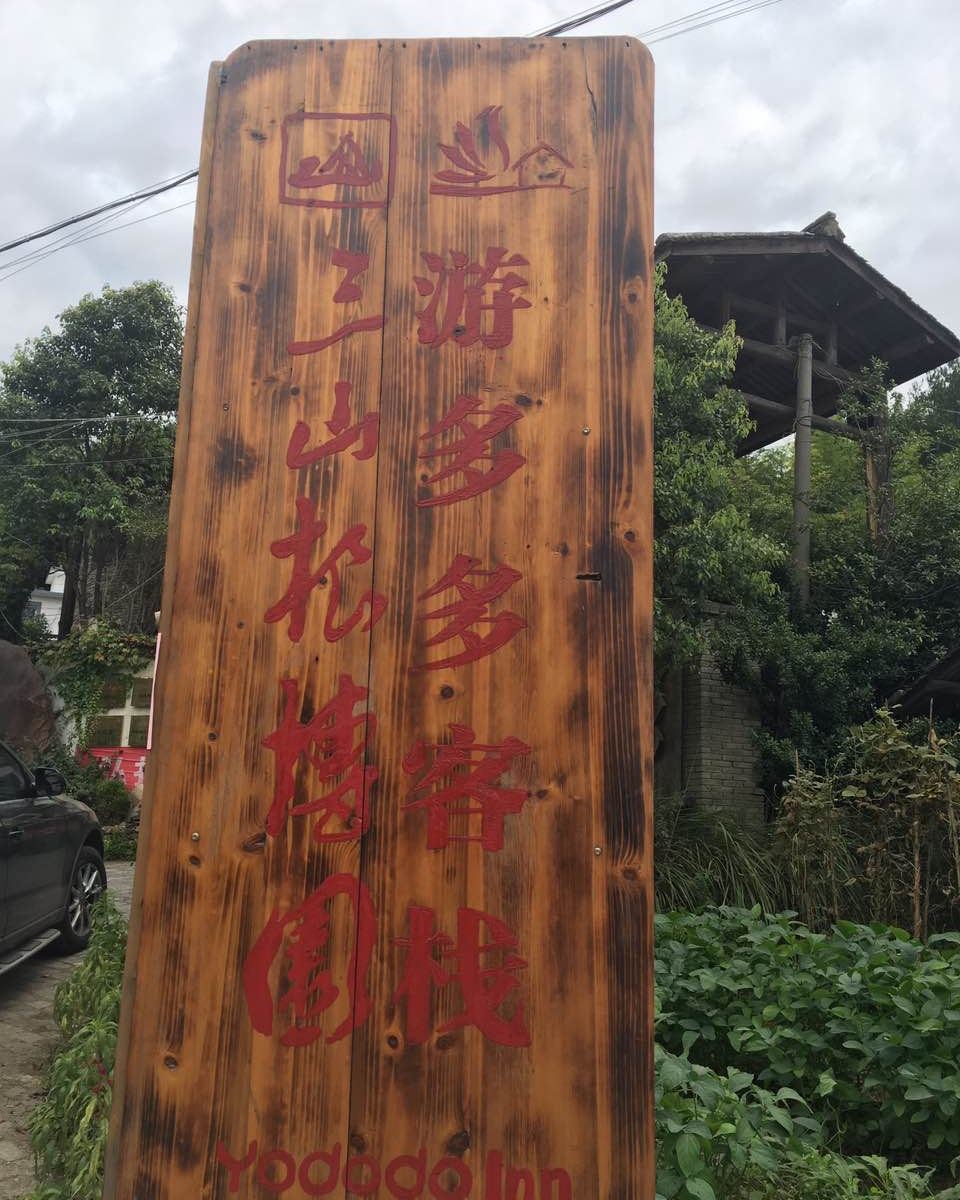 游多多客栈
三山根博园
Yododo Inn